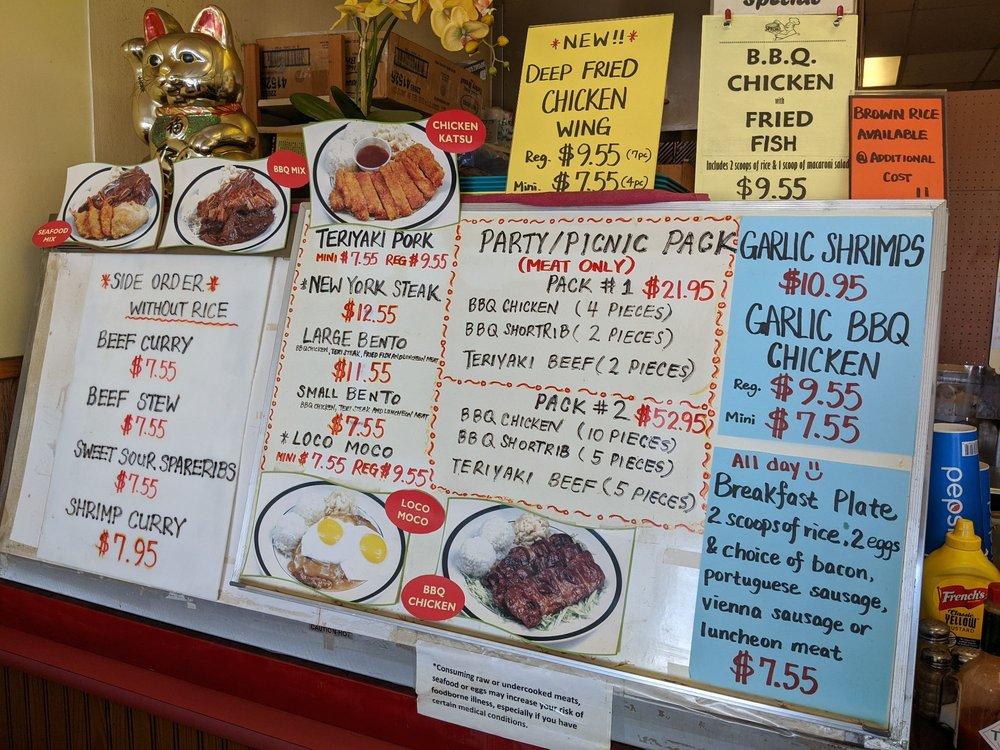 Specials
*NEW!!*
DEEP FRIED
CHICKEN
WING
Reg. $9.55 (7pc)
Mini. $7.55 (4pc)
B.B.Q.
CHICKEN
with
FRIED
FISH
Includes 2 scoops of rice & 1 scoop of macaroni salad
$9.55
BROWN RICE
AVAILABLE
@ ADDITIONAL
COST
!!
SEAFOOD
MIX
BBQ MIX
CHICKEN
KATSU
*SIDE ORDER*
WITHOUT RICE
BEEF CURRY
$7.55
BEEF STEW
$7.55
SWEET SOUR SPARERIBS
$7.55
SHRIMP CURRY
$7.95
TERIYAKI PORK
MINI $7.55 REG $9.55
*NEW YORK STEAK
$12.55
LARGE BENTO
BBQ CHICKEN, TERI STEAK, FRIED FISH AND LUNCHEON MEAT
$11.55
SMALL BENTO
BBQ CHICKEN, TERI STEAK AND LUNCHEON MEAT
$7.55
*LOCO MOCO
MINI $7.55 REG $9.55
PARTY/PICNIC PACK
(MEAT ONLY)
PACK #1 $21.95
BBQ CHICKEN (4 PIECES)
BBQ SHORTRIB (2 PIECES)
TERIYAKI BEEF (2 PIECES)
PACK #2 $52.95
BBQ CHICKEN (10 PIECES)
BBQ SHORTRIB (5 PIECES)
TERIYAKI BEEF (5 PIECES)
LOCO
MOCO
BBQ
CHICKEN
GARLIC SHRIMPS
$10.95
GARLIC BBQ
CHICKEN
Reg. $9.55
Mini $7.55
All day
Breakfast Plate
2 scoops of rice, 2 eggs
& choice of bacon,
portuguese sausage,
vienna sausage or
luncheon meat
$7.55
*Consuming raw or undercooked meats,
seafood or eggs may increase your risk of
foodborne illness, especially if you have
certain medical conditions.
CAUTION HOT
pepsi
French's
Classic
YELLOW
MUSTARD
福